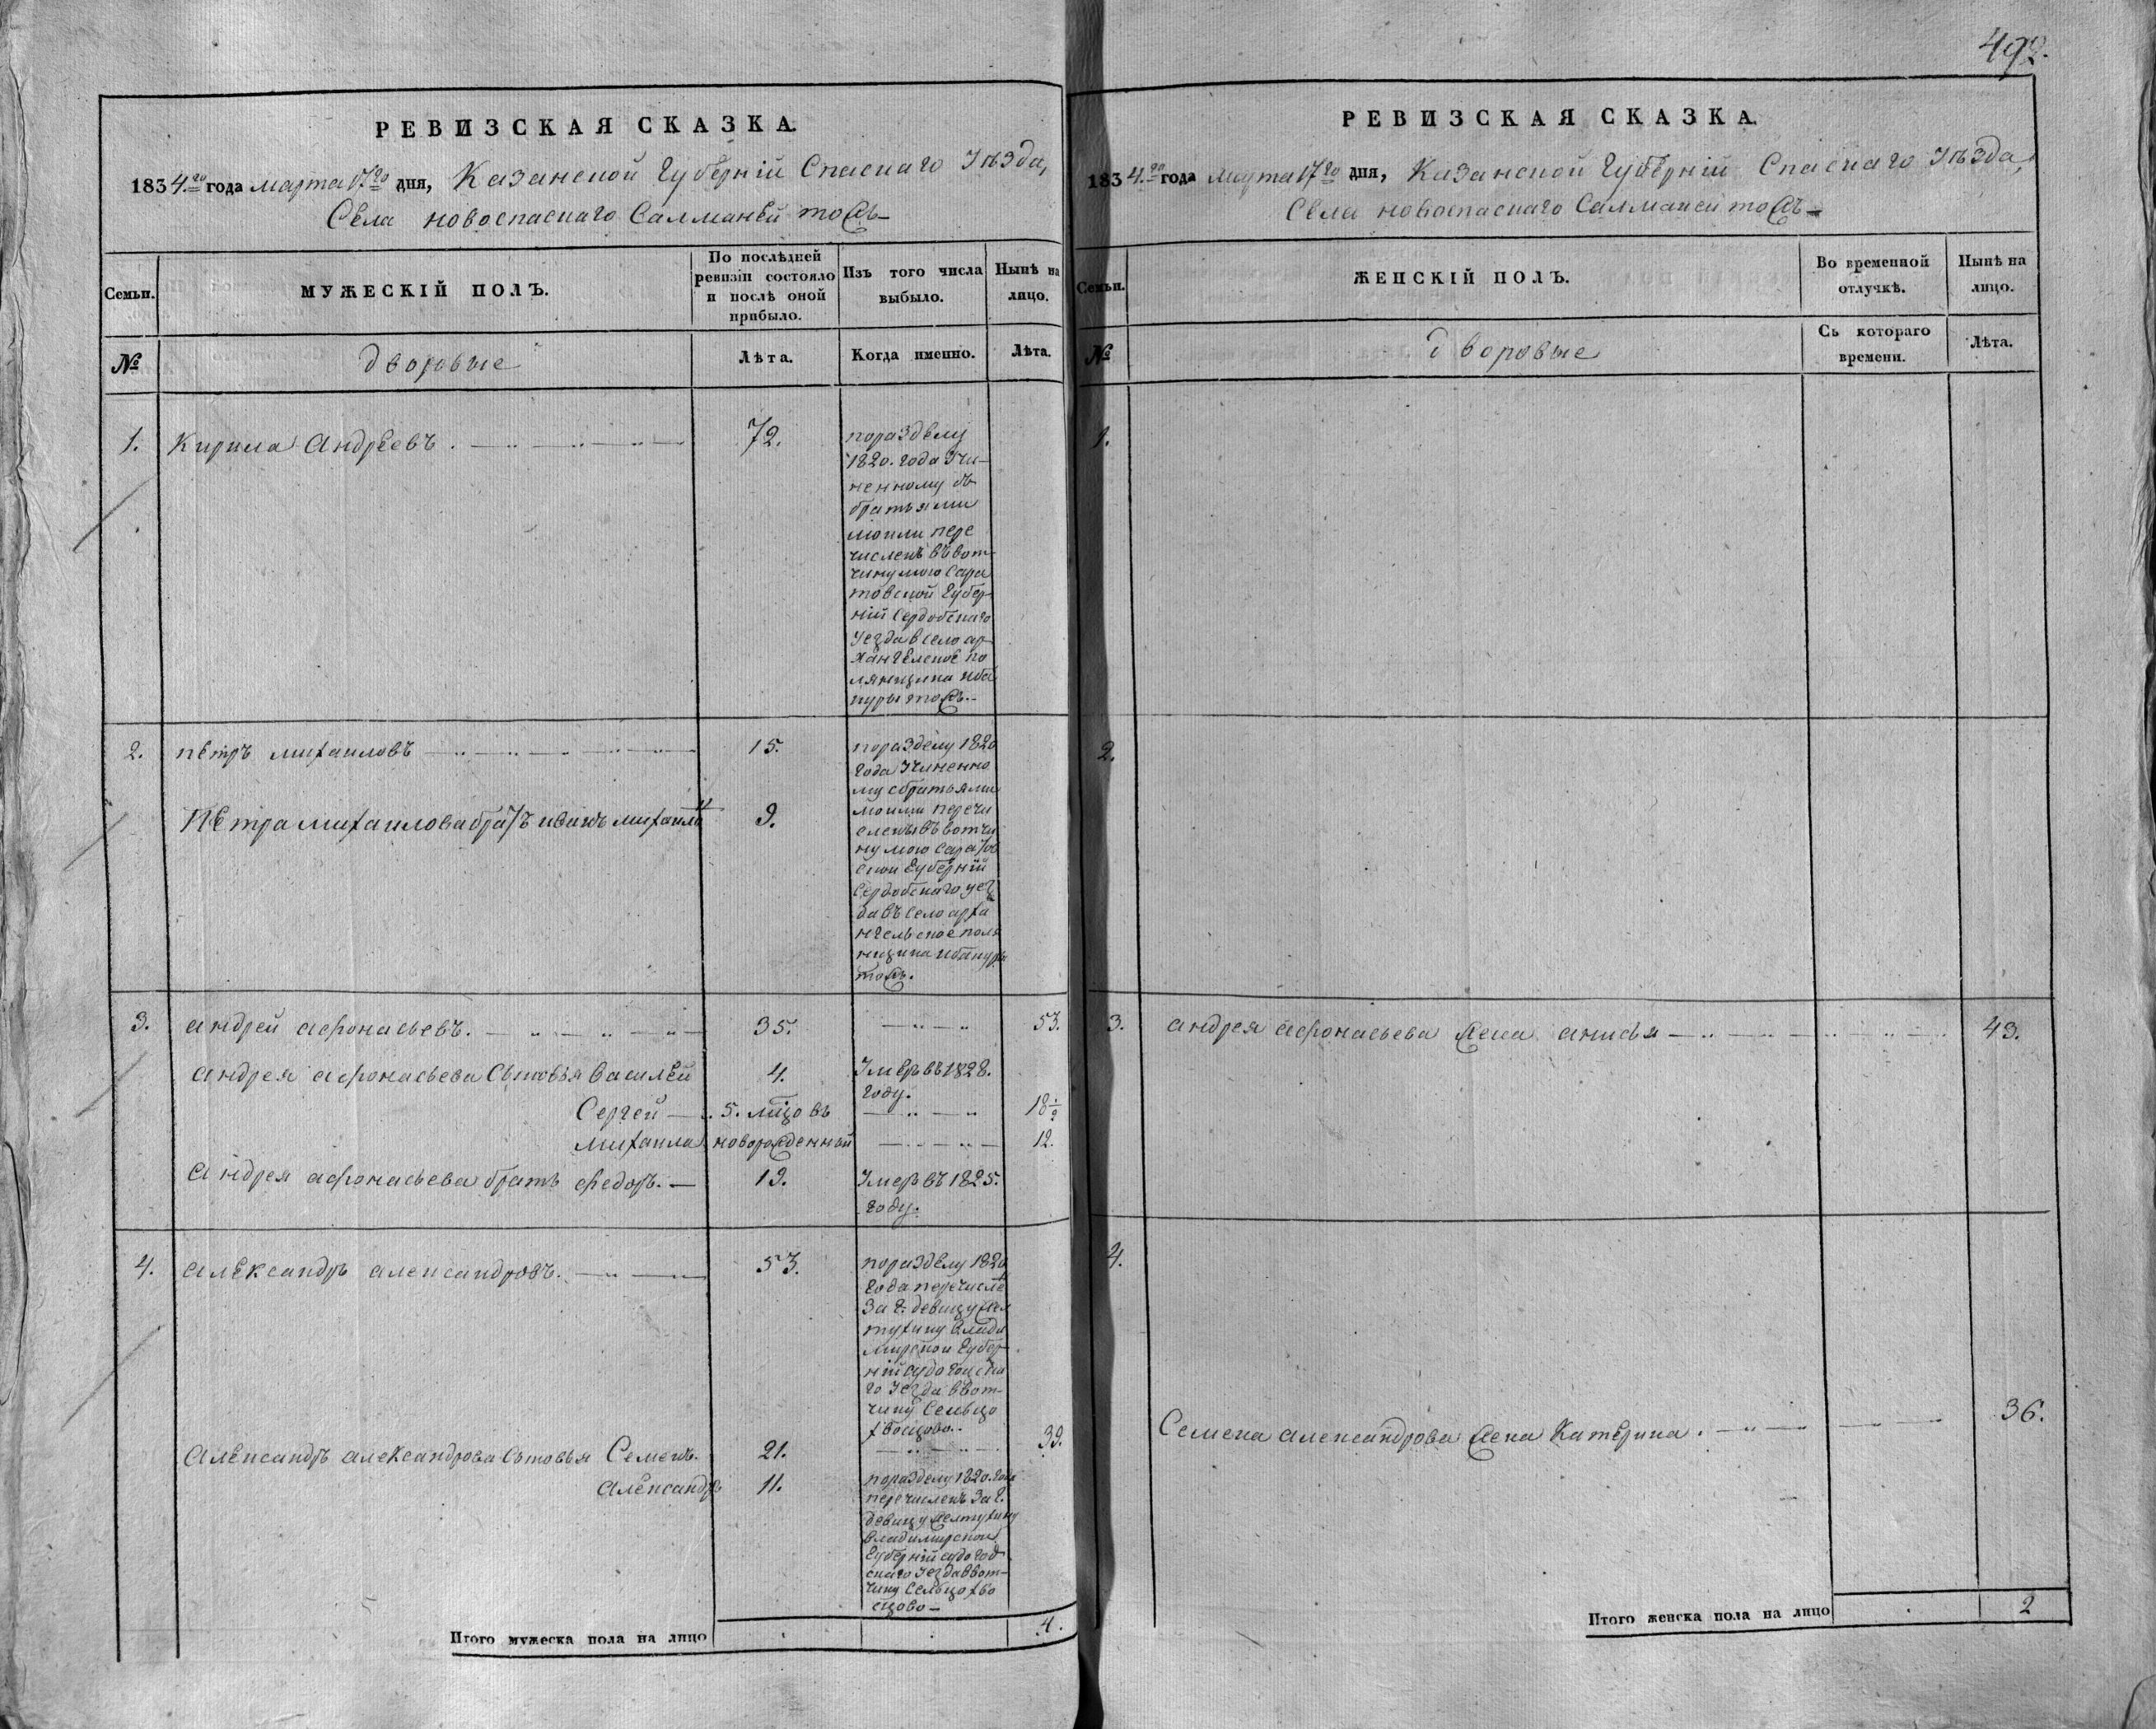 492.
РЕВИЗСКАЯ СКАЗКА.
1834.го года марта 17го дня, Казанской Губерній Спаскаго Уѣзда,
Села новоспаскаго Салманьй тожъ
Семьи.
МУЖЕСКІЙ ПОЛЪ.
По послѣдней
ревизіи состояло
и послѣ оной
прибыло.
Изъ того числа
выбыло.
Нынѣ на
лицо.
№
дворовые
Лѣта.
Когда именно.
Лѣта.
1.
Кирила Андреевъ.
72.
поразделу
1820. года Учи-
ненному съ
братьями
моими пере
численъ въ вот-
чину мою Сара
товской Губер-
ній Сердобскаго
Уезда в село ар
хангелское по
лянщина ибо
куры тожъ.
2.
петръ михаиловъ
15.
поразделу 1820
года Учиненно
му сбратьями
моими перечи
сленъ въ вотчи
ну мою Саратов
скои Губерній
Сердобскаго уез
да въ село арха
нгельское поля
нщина ибокуры
тожъ.
Петра михаилова братъ иванъ михаилъ
9.
3.
андрей афонасьевъ.
35.
53.
андрея афонасьева Сыновья Василей
4.
Умеръ въ 1828.
году.
Сергей
5. мцовъ
18 1/2
михаила
новорожденный
12.
андрея афонасьева братъ федоръ.
19.
Умеръ въ 1825.
году.
4.
александръ александровъ.
53.
поразделу 1820
года перечисле
За г. девицу жел
тухину Влади
мирской Губер
ній судогодска
го Уезда ввот-
чину Сельцо
хвощово.
Александръ александрова Сыновья Семенъ.
21.
39.
Александръ
11.
поразделу 1820. года
перечисленъ За г.
девицу желтухину
владимирской
Губерній судогод
скаго Уезда ввот-
чину Сельцо хво
щово
Итого мужеска пола на лицо
4.
РЕВИЗСКАЯ СКАЗКА.
1834.го года марта 17го дня, Казанской Губерній Спаскаго Уѣзда,
Села новоспаскаго Салманей тожъ
Семьи.
ЖЕНСКІЙ ПОЛЪ.
Во временной
отлучкѣ.
Нынѣ на
лицо.
№
дворовые
Съ котораго
времени.
Лѣта.
1.
2.
3.
андрея афонасьева жена анисья
43.
4.
Семена александрова жена Катерина.
36.
Итого женска пола на лицо
2